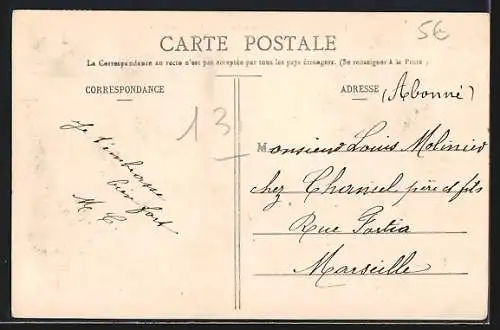 5€
CARTE POSTALE
La Correspondance au recto n'est pas acceptée par tous les pays étrangers. (Se renseigner à la Poste)
CORRESPONDANCE
ADRESSE (Abonné)
13
Je t'embrasse
bien fort
M. C.
Monsieur Louis Molinier
chez Chancel père et fils
Rue Fortia
Marseille